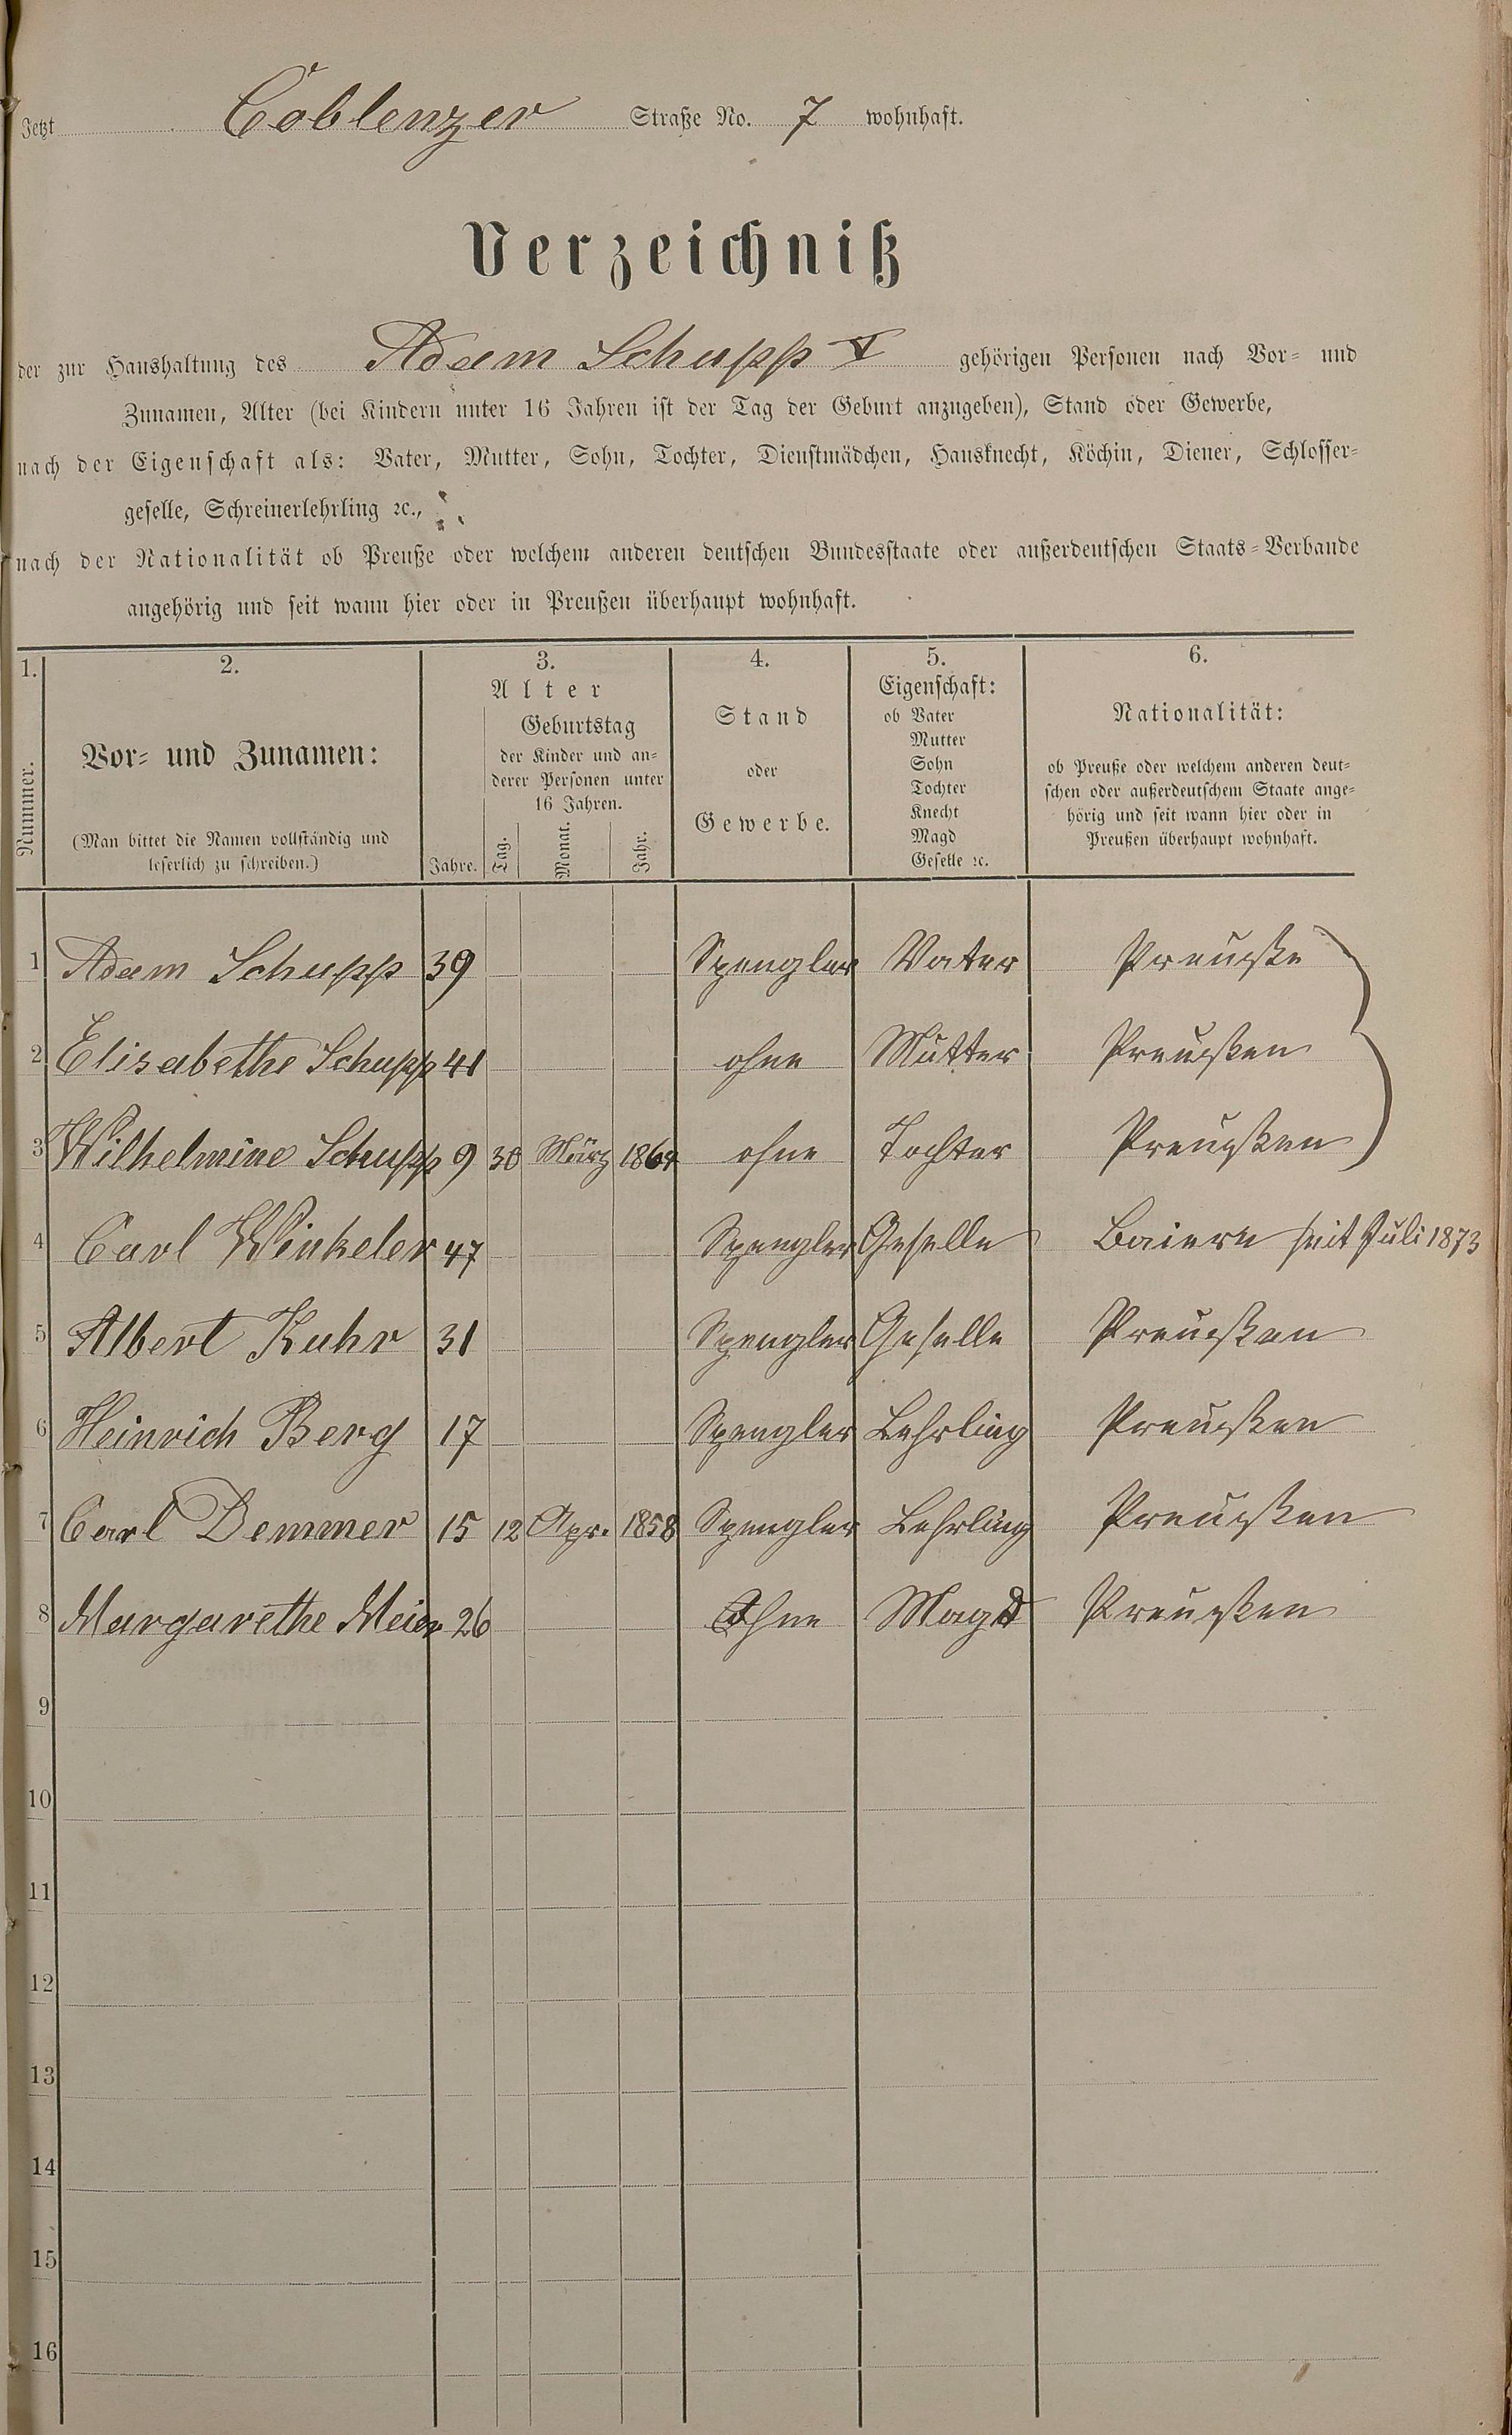 Jetzt Coblenzer Straße No. 7 wohnhaft.
Verzeichniß
der zur Haushaltung des Adam Schupp V gehörigen Personen nach Vor- und
Zunamen, Alter (bei Kindern unter 16 Jahren ist der Tag der Geburt anzugeben), Stand oder Gewerbe,
nach der Eigenschaft als: Vater, Mutter, Sohn, Tochter, Dienstmädchen, Hausknecht, Köchin, Diener, Schlosser-
geselle, Schreinerlehrling ꝛc.,
nach der Nationalität ob Preuße oder welchem anderen deutschen Bundesstaate oder außerdeutschen Staats-Verbande
angehörig und seit wann hier oder in Preußen überhaupt wohnhaft.
1.
Nummer.
2.
Vor- und Zunamen:
(Man bittet die Namen vollständig und
leserlich zu schreiben.)
3.
Alter
Geburtstag
der Kinder und an-
derer Personen unter
16 Jahren.
Jahre. Tag. Monat. Jahr.
4.
Stand
oder
Gewerbe.
5.
Eigenschaft:
ob Vater
Mutter
Sohn
Tochter
Knecht
Magd
Geselle ꝛc.
6.
Nationalität:
ob Preuße oder welchem anderen deut-
schen oder außerdeutschem Staate ange-
hörig und seit wann hier oder in
Preußen überhaupt wohnhaft.
1 Adam Schupp 39 Spengler Vater Preuße
2 Elisabethe Schupp 41 ohne Mutter Preußen
3 Wilhelmine Schupp 9 30 März 1864 ohne Tochter Preußen
4 Carl Winkeler 47 Spengler Geselle Baiern seit Juli 1873
5 Albert Kuhr 31 Spengler Geselle Preußen
6 Heinrich Berg 17 Spengler Lehrling Preußen
7 Carl Demmer 15 12 Apr. 1858 Spengler Lehrling Preußen
8 Margarethe Meier 26 Ohne Magd Preußen
9
10
11
12
13
14
15
16